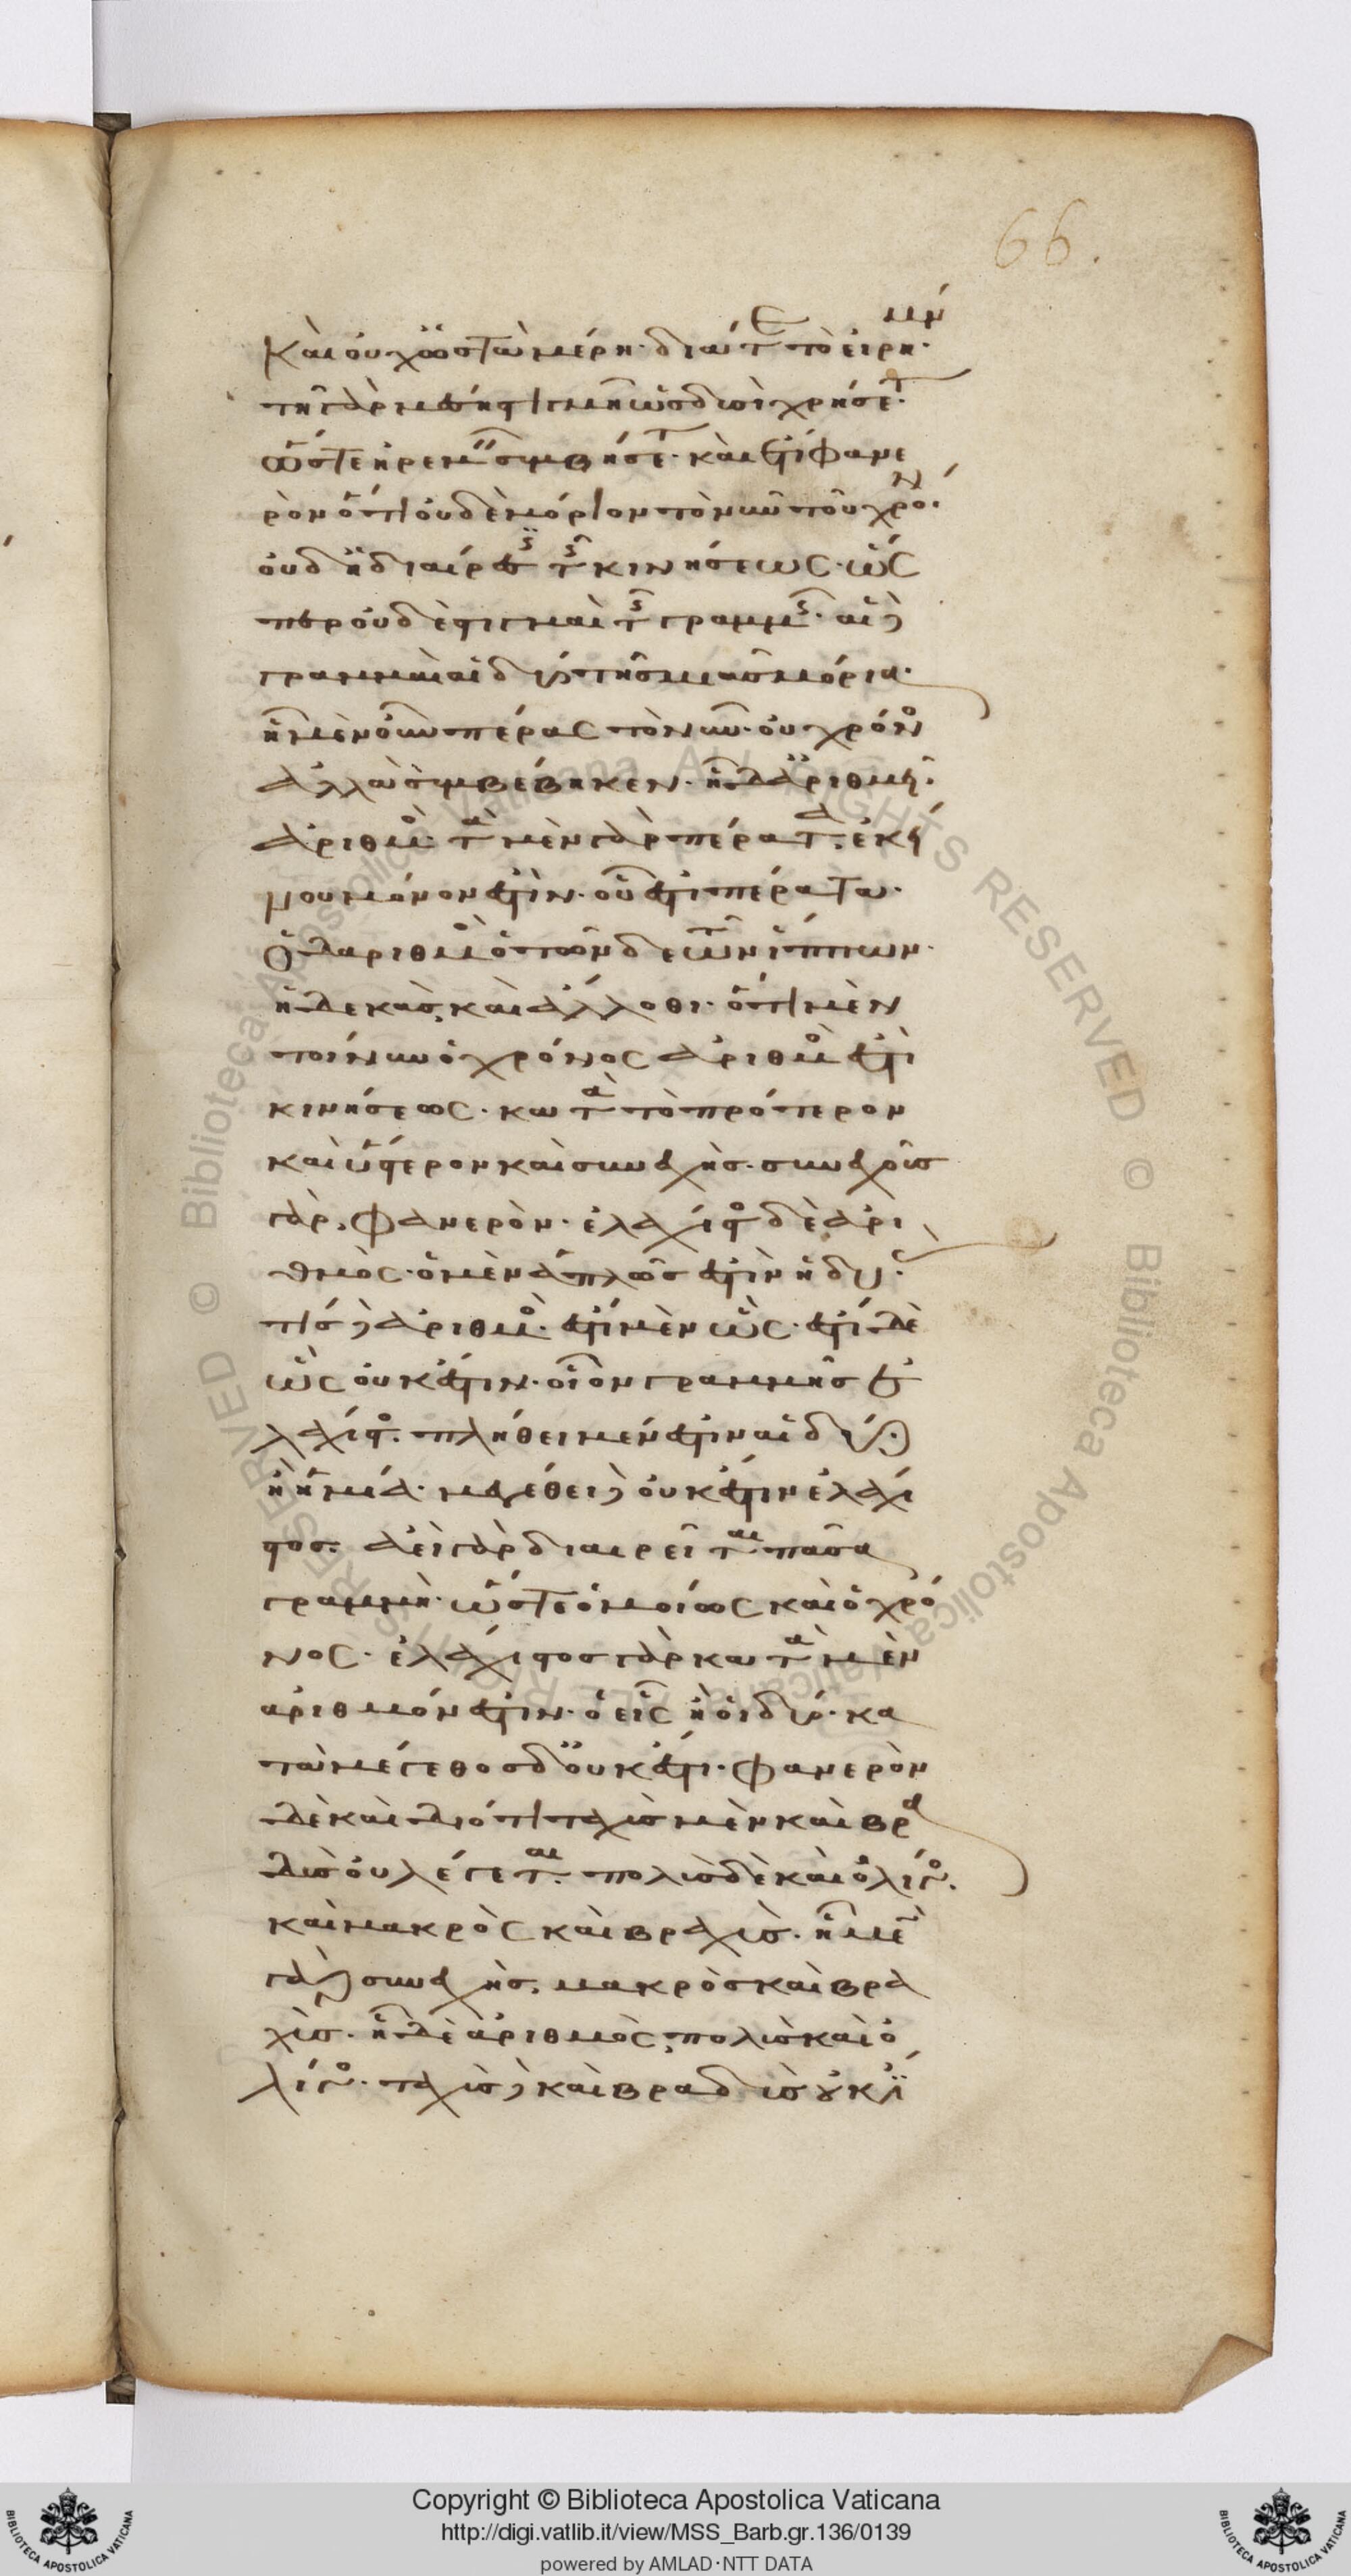 Καὶ οὐχ ὡς τὰ μέρη· διά τε τὸ εἰρημέν·
τῇ γὰρ μέσῃ στιγμῇ ὡς δυσὶ χρήσεται·
ὥστε ἠρεμεῖν συμβήσεται· καὶ ἔτι φανε
ρὸν ὅτι οὐδὲ μόριον τὸ νῦν τοῦ χρόν·
οὐδ ἡ διαίρεσις τῆς κινήσεως· ὥς
περ οὐδὲ στιγμαὶ τῆς γραμμῆς· αἱ δὲ
γραμμαὶ αἱ δύο τῆς μιᾶς μόρια·
ᾗ μὲν οὖν πέρας τὸ νῦν· οὐ χρόνος
ἀλλὰ συμβέβηκεν· ᾗ δ ἀριθμεῖ·
ἀριθμός· τὰ μὲν γὰρ πέρατα· ἐκεί
νου μόνον ἐστὶν· οὗ ἐστι πέρατα·
ὁ δ ἀριθμὸς ὁ τῶνδε τῶν ἵππων·
ἡ δεκάς, καὶ ἄλλοθι· ὅτι μὲν
τοίνυν ὁ χρόνος ἀριθμός ἐστι
κινήσεως· κατὰ τὸ πρότερον
καὶ ὕστερον καὶ συνεχής· συνεχοῦς
γὰρ, φανερὸν· ἐλάχιστος δὲ ἀρι
θμὸς· ὁ μὲν ἁπλῶς ἐστὶν ἡ δυάς·
τὶς δὲ ἀριθμὸς· ἔστι μὲν ὡς· ἔστι δὲ
ὡς οὐκ ἔστιν· οἷον γραμμῆς ἐ
λάχιστος· πλήθει μέν ἐστιν αἱ δύο·
ἢ ἡ μία· μεγέθει δὲ οὐκ ἔστιν ἐλάχι
στος· ἀεὶ γὰρ διαιρεῖται πᾶσα
γραμμὴ· ὥστε ὁμοίως καὶ ὁ χρό
νος· ἐλάχιστος γὰρ κατὰ μὲν
ἀριθμόν ἐστιν· ὁ εἷς ἢ οἱ δύο· κα
τὰ μέγεθος δ οὐκ ἔστι· φανερὸν
δὲ καὶ διότι ταχὺς μὲν καὶ βρα
δὺς οὐ λέγεται· πολὺς δὲ καὶ ὀλίγος·
καὶ μακρὸς καὶ βραχύς· ᾗ μὲν
γὰρ συνεχής, μακρὸς καὶ βρα
χύς· ᾗ δὲ ἀριθμὸς, πολὺς καὶ ὀ
λίγος· ταχὺς δὲ καὶ βραδὺς οὐκ ἔστι